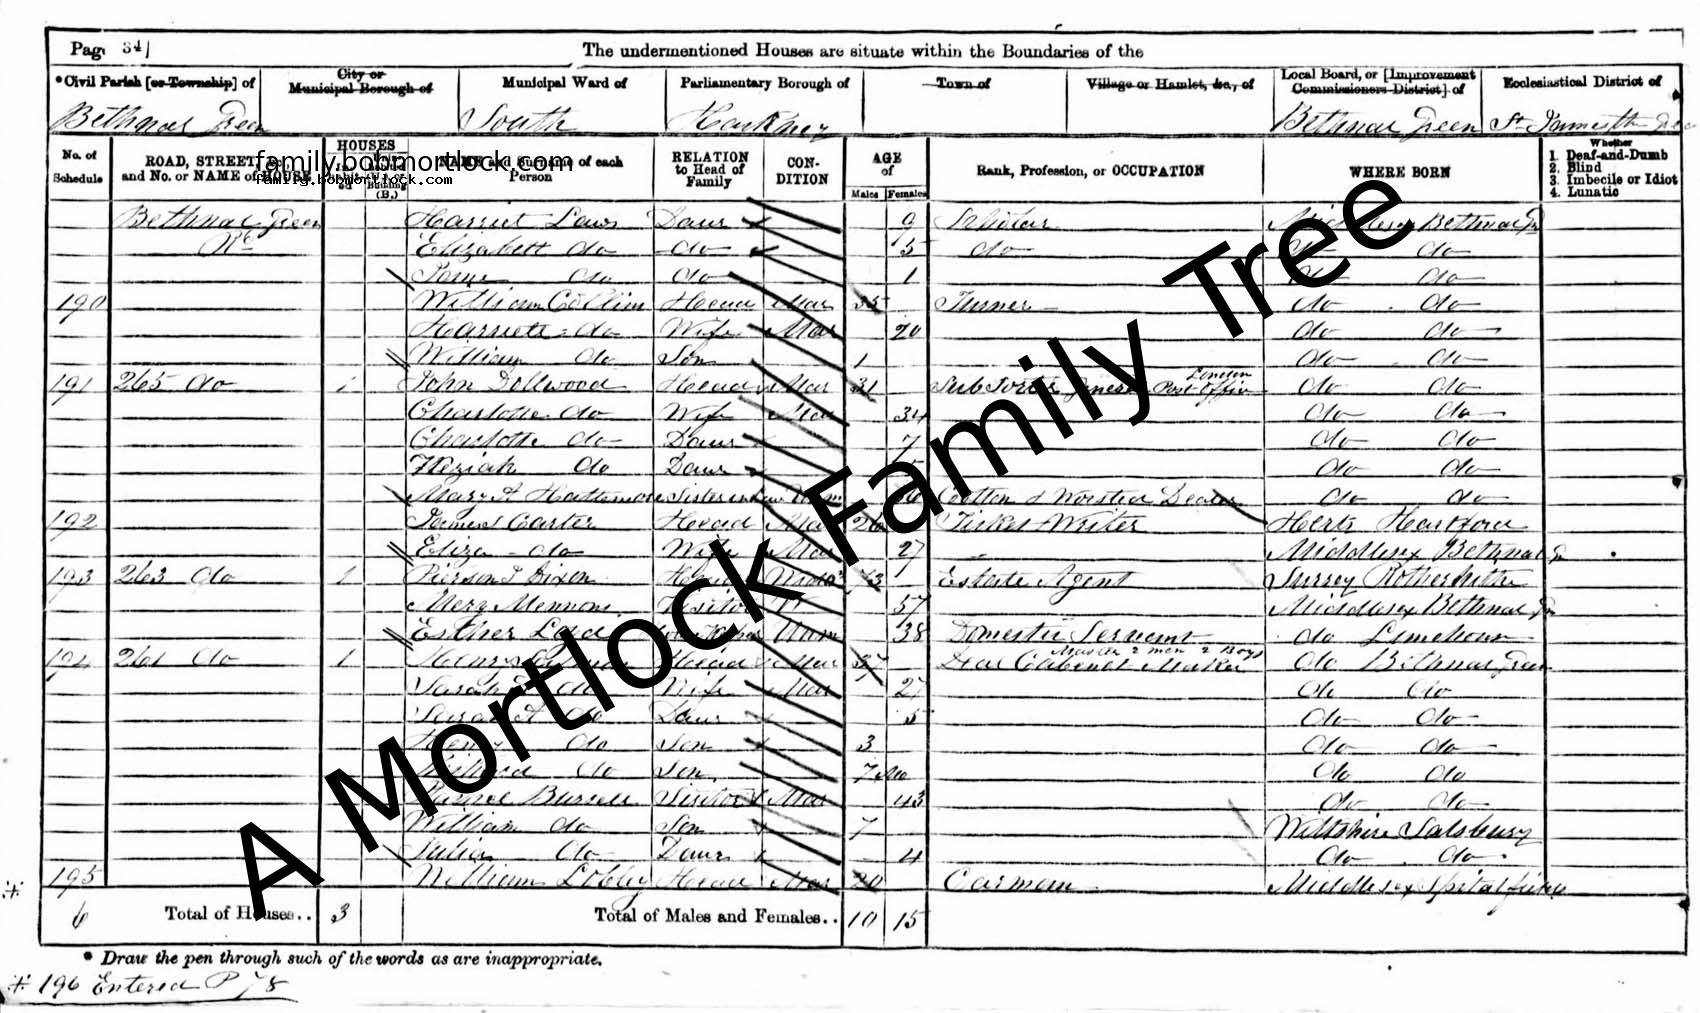 Page 34
The undermentioned Houses are situate within the Boundaries of the
*Civil Parish [or Township] of
City or Municipal Borough of
Municipal Ward of
Parliamentary Borough of
Town of
Village or Hamlet, &c., of
Local Board, or [Improvement Commissioners District] of
Ecclesiastical District of
Bethnal Green South Hackney Bethnal Green St
No. of Schedule
ROAD, STREET, &c., and No. or NAME of HOUSE
HOUSES
NAME and Surname of each Person
RELATION to Head of Family
CON-DITION
AGE of
Males Females
Rank, Profession, or OCCUPATION
WHERE BORN
Whether
1. Deaf-and-Dumb
2. Blind
3. Imbecile or Idiot
4. Lunatic
family.bobmortlock.com
family.bobmortlock.com
Bethnal Green Harriet Laws Daur 9 Scholar Middlesex Bethnal Gn
Rd Elizabeth do do 5 do do do
do do 1 do do
190 William Collins Head Mar 35 Turner do do
Harriett do Wife Mar 20 do do
William do Son 1 do do
191 265 do 1 John Dollwood Head Mar 31 Sub Sorter General Post Office London do do
Charlotte do Wife Mar 34 do do
Charlotte do Daur 7 do do
Keziah do Daur do do
Mary A Sister in Law Unm Cotton & Worsted Dealer do do
192 James Carter Head Mar 26 Ticket Writer Herts Hertford
Eliza do Wife Mar 27 Middlesex Bethnal Gn
193 263 do 1 Dixon Head 73 Estate Agent Surrey Rotherhithe
Mary Visitor 57 Middlesex Bethnal Gn
Esther Lord Unm 38 Domestic Servant do Limehouse
194 261 do 1 Henry Head Mar 37 Cabinet Maker Master 2 men 2 Boys do Bethnal Green
Sarah do Wife Mar 27 do do
Sarah A do Daur 5 do do
Henry do Son 3 do do
do Son 7 Mo do do
Burrell Mar 43 do do
William do Son 7 Wiltshire Salsbury
Julia do Daur 4 do do
195 William Lobley Head Mar 20 Carman Middlesex Spitalfields
6 Total of Houses.. 3 Total of Males and Females.. 10 15
* Draw the pen through such of the words as are inappropriate.
196 Entered P 78
A Mortlock Family Tree